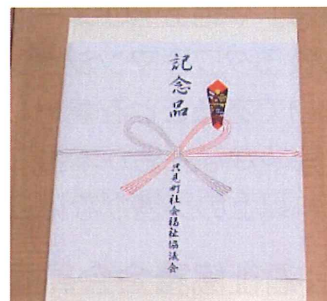 記念品
只見町社会福祉協議会